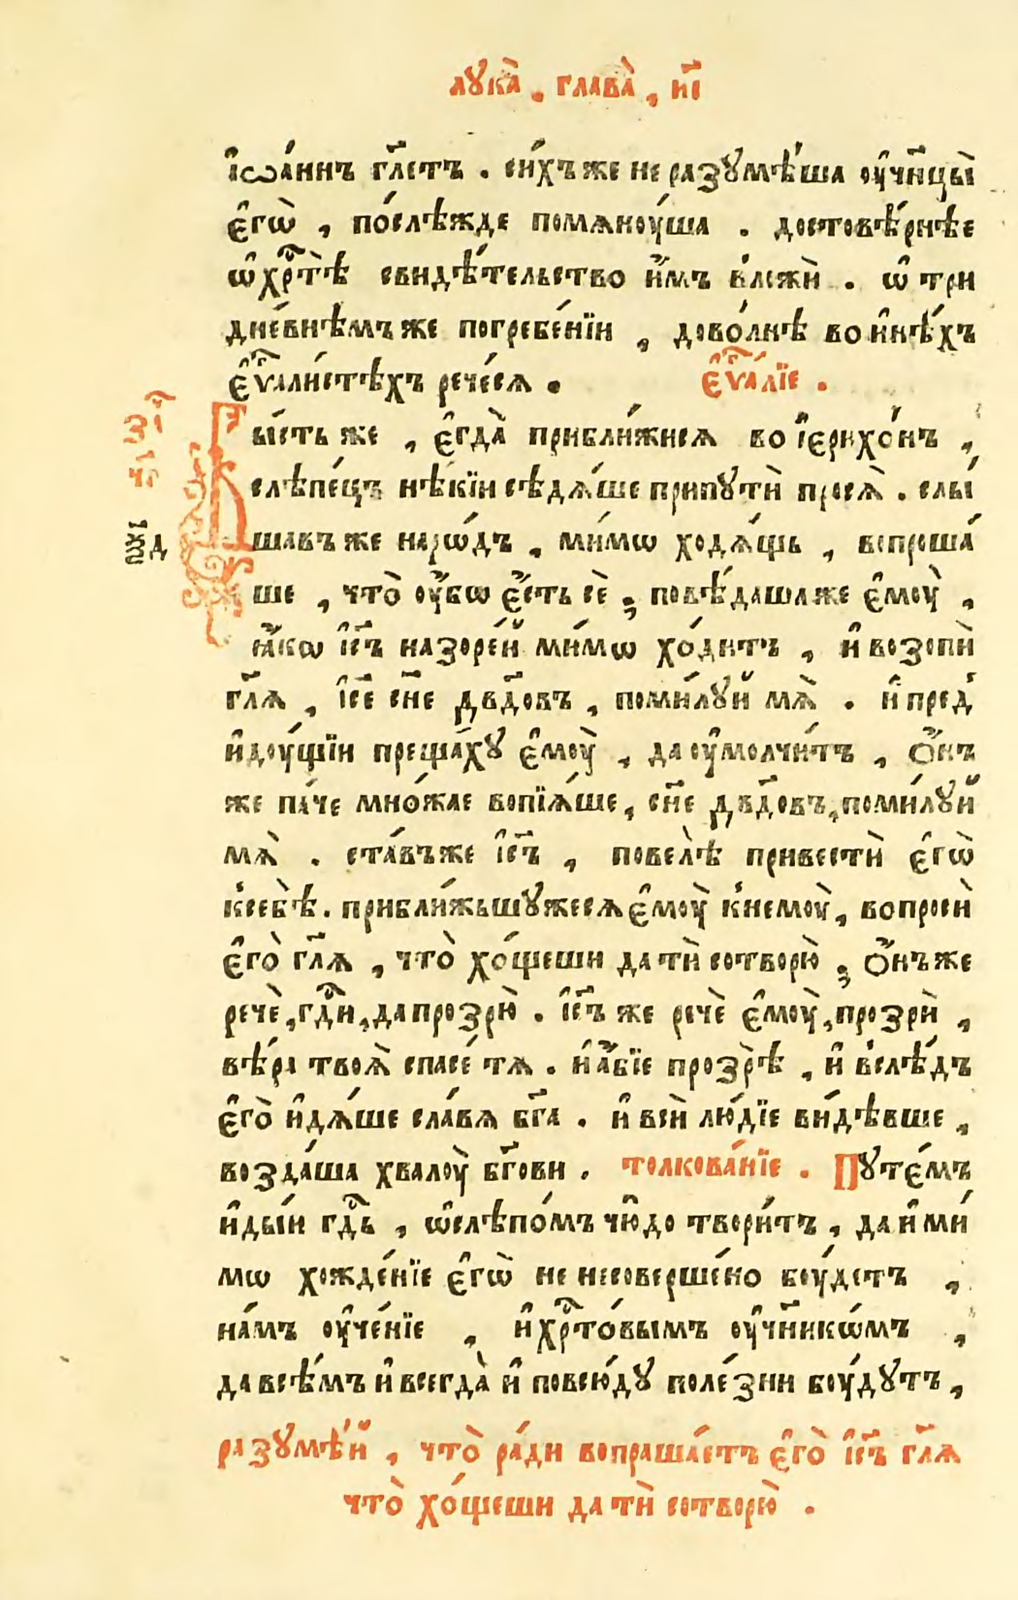 лꙋка̀ . глава̀ , и҃і
і҆ѡа́ннъ гл҃етъ . си́хъ же не разꙋмѣ́ша ᲂу҆чн҃цы̀
є҆гѡ̀ , по́слѣжде помѧнꙋ́ша . достовѣ́рнѣе
ѡ҆ хрⷭ҇тѣ̀ свидѣ́тельство и҆́мъ влежѝ . ѡ҆ три
дне́внѣмъ же погребе́нїи , дово́лнѣ во и҆нѣ́хъ
є҆ѵⷢ҇али́стѣхъ рече́сѧ . є҆ѵⷢ҇а́лїе .
Бы́сть же , є҆гда̀ прибли́жисѧ во і҆єрихо́нъ ,
слѣпе́цъ нѣ́кїи сѣдѧ́ше при пꙋтѝ просѧ̀ . слы́
шавъ же наро́дъ , ми́мѡ ходѧ́щь , вопроша́
ше , что̀ ᲂу҆́бѡ є҆́сть сѐ ; повѣ́даша же є҆мꙋ̀ ,
ꙗ҆́кѡ і҆с҃ъ назоре́й ми́мѡ хо́дитъ , и҆ возопѝ
гл҃ѧ , і҆с҃е сн҃е дв҃довъ , поми́лꙋй мѧ̀ . и҆ пред̾
идꙋ́щїи преща́хꙋ є҆мꙋ̀ , да ᲂу҆молчи́тъ , ѻ҆́нъ
же па́че мно́жае вопїѧ́ше , сн҃е дв҃довъ , поми́лꙋй
мѧ̀ . ста́въ же і҆с҃ъ , повелѣ̀ привестѝ є҆гѡ̀
к̾себѣ̀ . прибли́жьшꙋжесѧ є҆мꙋ̀ к̾немꙋ̀ , вопросѝ
є҆го̀ гл҃ѧ , что̀ хо́щеши да тѝ сотворю̀ ; ѻ҆́нъ же
речѐ , гдⷭ҇и , да прозрю̀ . і҆с҃ъ же речѐ є҆мꙋ̀ , прозрѝ ,
вѣ́ра твоѧ̀ спасе́ тѧ . и҆ а҆́бїе прозрѣ̀ , и҆ в̾слѣ́дъ
є҆го̀ и҆дѧ́ше сла́вѧ бг҃а . и҆ всѝ лю́дїе ви́дѣвше ,
возда́ша хвалꙋ̀ бг҃ови . толкова́нїе . Пꙋте́мъ
и҆ды́и гдⷭ҇ь , ѡ҆ слѣпо́мъ чю́до твори́тъ , да и҆ ми́
мѡ хожде́нїе є҆гѡ̀ не несоверше́но бꙋ́детъ ,
на́мъ ᲂу҆че́нїе , и҆ хрⷭ҇то́вымъ ᲂу҆чн҃икѡ́мъ ,
да всѣ́мъ и҆ всегда̀ и҆ повсю́дꙋ поле́зни бꙋ́дꙋтъ ,
разꙋмѣ́й , что̀ ра́ди вопраша́етъ є҆го̀ і҆с҃ъ гл҃ѧ
что̀ хо́щеши да тѝ сотворю̀ .